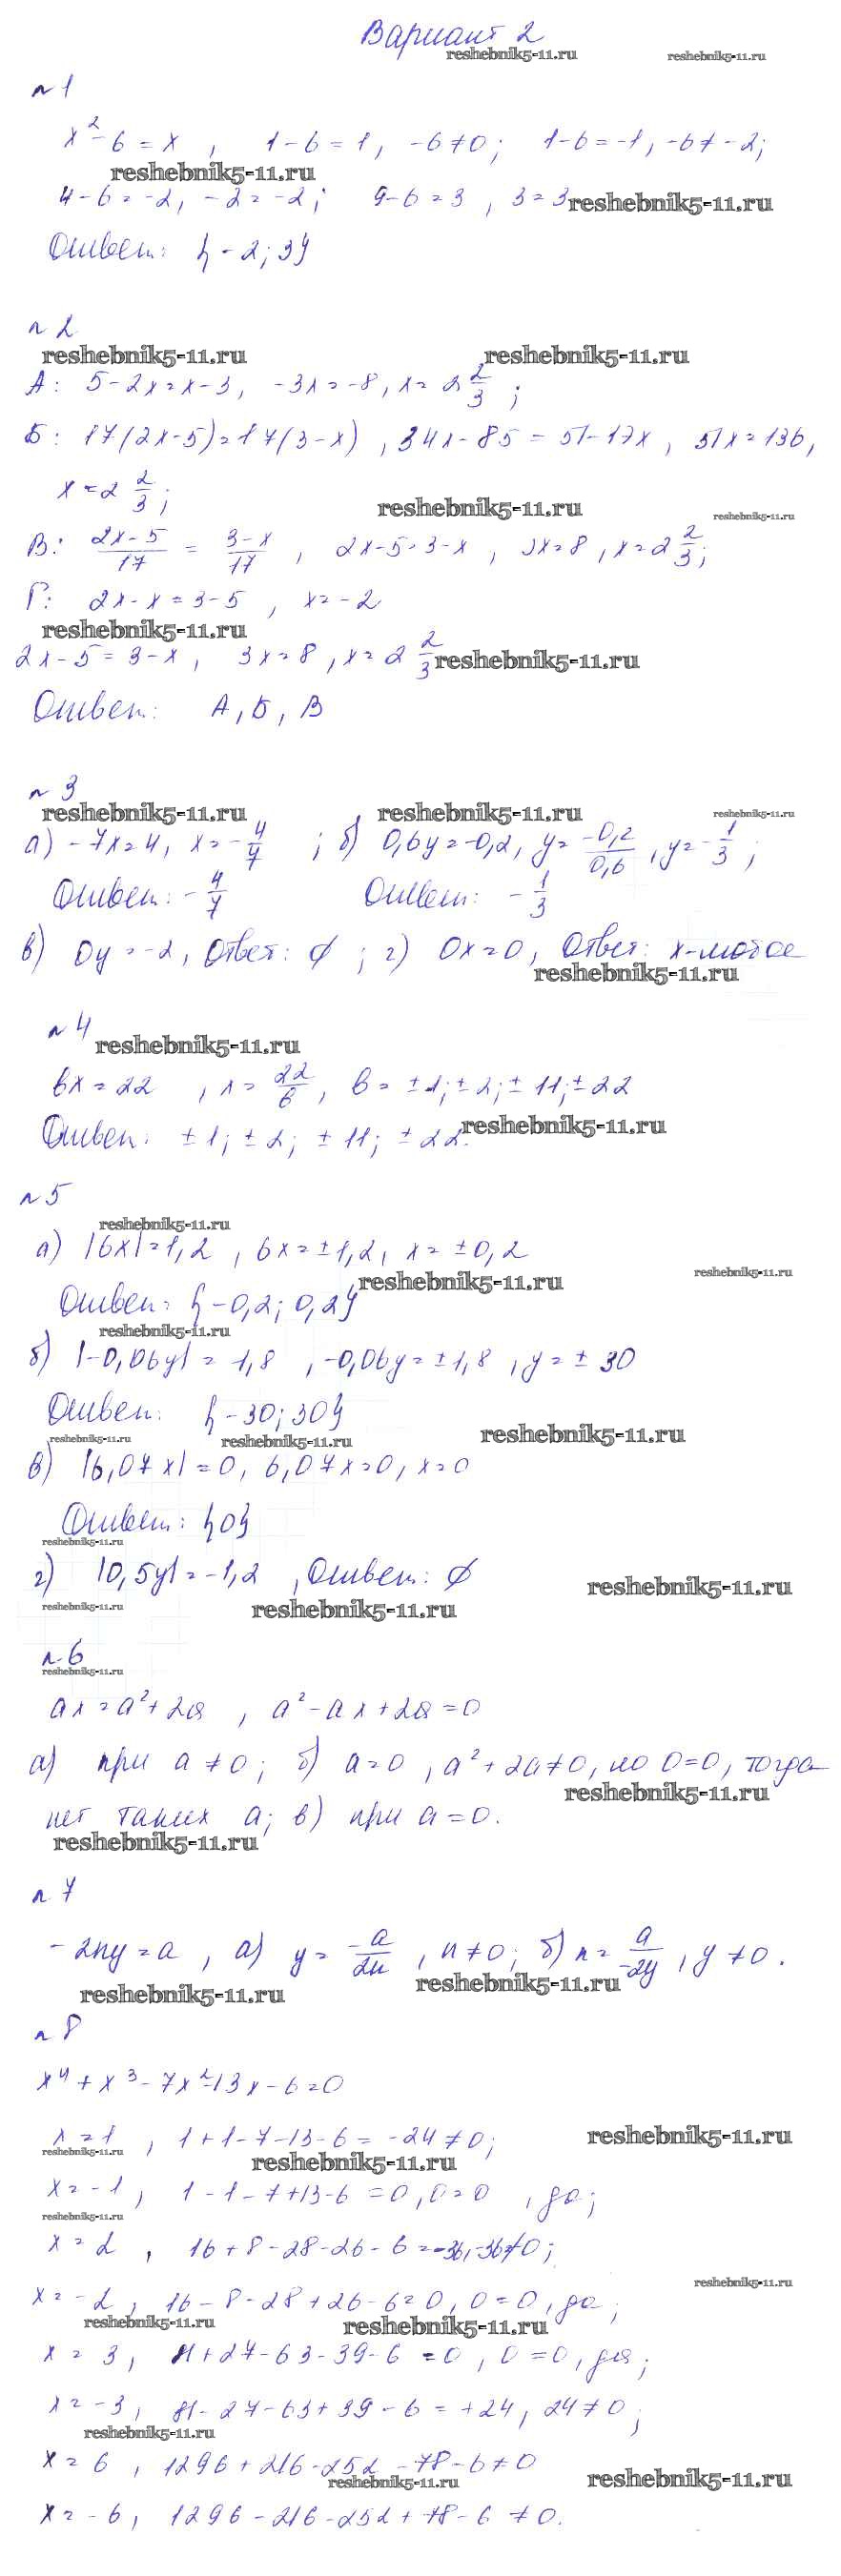 Вариант 2
reshebnik5-11.ru reshebnik5-11.ru
№1
x² - 6 = x , 1-6=1, -6≠0; 1-6=-1, -6≠-2;
reshebnik5-11.ru
4-6=-2, -2=-2; 9-6=3 , 3=3 reshebnik5-11.ru
Ответ: {-2; 3}
№2
reshebnik5-11.ru reshebnik5-11.ru
А: 5-2x=x-3, -3x=-8, x=2 2/3 ;
Б: 17(2x-5)=17(3-x) , 34x-85=51-17x , 51x=136,
x=2 2/3;
reshebnik5-11.ru reshebnik5-11.ru
В: (2x-5)/17 = (3-x)/17 , 2x-5=3-x , 3x=8 , x=2 2/3;
Г: 2x-x=3-5 , x=-2
reshebnik5-11.ru
2x-5=3-x, 3x=8, x=2 2/3 reshebnik5-11.ru
Ответ: А, Б, В
№3
reshebnik5-11.ru reshebnik5-11.ru reshebnik5-11.ru
а) -7x=4, x=-4/7 ; б) 0,6y=-0,2, y=-0,2/0,6 , y=-1/3 ;
Ответ: -4/7 Ответ: -1/3
в) 0y=-2, Ответ: ∅ ; г) 0x=0, Ответ: x-любое
reshebnik5-11.ru
№4
reshebnik5-11.ru
вx=22 , x=22/в, в=±1; ±2; ±11; ±22
Ответ: ±1; ±2; ±11; ±22. reshebnik5-11.ru
№5
reshebnik5-11.ru
а) |6x|=1,2 , 6x=±1,2, x=±0,2
reshebnik5-11.ru reshebnik5-11.ru
Ответ: {-0,2; 0,2}
reshebnik5-11.ru
б) |-0,06y|=1,8 , -0,06y=±1,8 , y=±30
Ответ: {-30; 30}
reshebnik5-11.ru reshebnik5-11.ru reshebnik5-11.ru
в) |6,07x|=0, 6,07x=0, x=0
Ответ: {0}
reshebnik5-11.ru
г) |0,5y|=-1,2 , Ответ: ∅ reshebnik5-11.ru
reshebnik5-11.ru reshebnik5-11.ru
№6
reshebnik5-11.ru
ax=a²+2a , a²-ax+2a=0
а) при a≠0; б) a=0 , a²+2a≠0, но 0=0, тогда
reshebnik5-11.ru
нет таких a; в) при a=0.
reshebnik5-11.ru
№7
-2ny=a , а) y=-a/2n , n≠0; б) n=a/-2y , y≠0.
reshebnik5-11.ru reshebnik5-11.ru
№8
x⁴+x³-7x²-13x-6=0
x=1 , 1+1-7-13-6=-24≠0; reshebnik5-11.ru
reshebnik5-11.ru reshebnik5-11.ru
x=-1, 1-1-7+13-6=0, 0=0 , да;
reshebnik5-11.ru
x=2 , 16+8-28-26-6=-36, -36≠0;
reshebnik5-11.ru
x=-2, 16-8-28+26-6=0, 0=0, да;
reshebnik5-11.ru reshebnik5-11.ru
x=3, 81+27-63-39-6=0, 0=0, да;
x=-3, 81-27-63+39-6=+24, 24≠0;
reshebnik5-11.ru
x=6 , 1296+216-252-78-6≠0
reshebnik5-11.ru reshebnik5-11.ru
x=-6, 1296-216-252+78-6≠0.